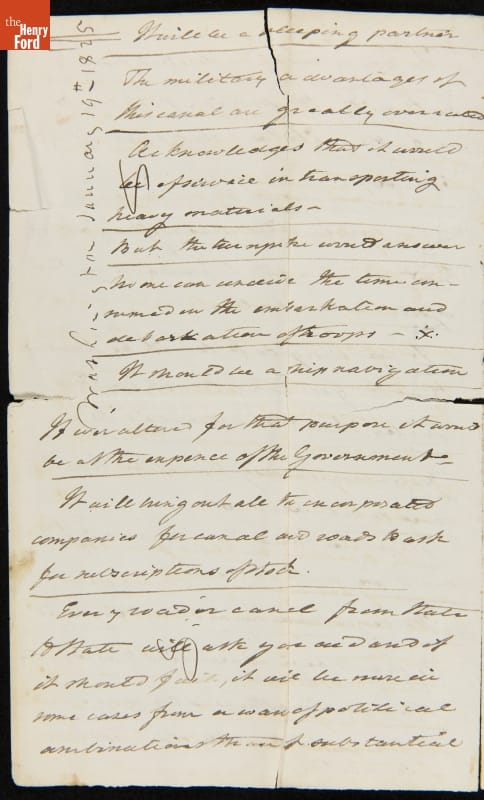 the
Henry
Ford
Washington January 19th 1825
It will be a sleeping partner
The military advantages of
this canal are greatly overrated
Acknowledges that it would
be of service in transporting
heavy materials -
But the turnpike would answer
No one can conceive the time con-
sumed in the embarkation and
debarkation of troops -
It should be a ship navigation
If ever altered for that purpose it would
be at the expence of the Government -
It will bring out all the incorporated
companies for canal and roads to ask
for subscriptions of stock.
Every road or canal from State
to State will ask you aid and if
it should fail, it will be more in
some cases from a want of political
combinations than of substantial